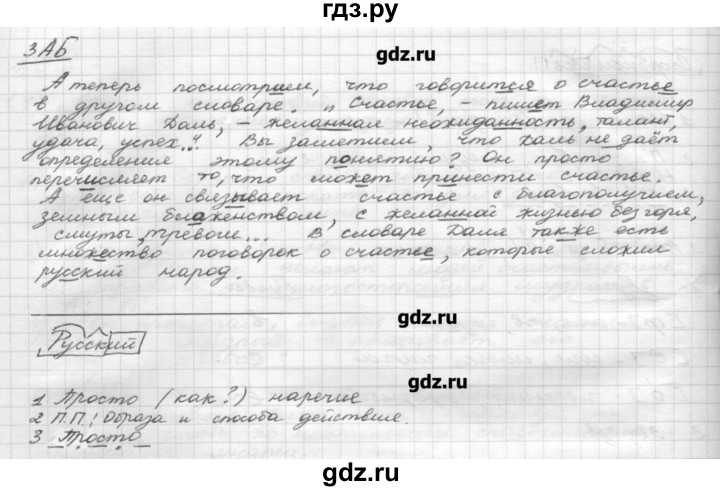 гдз.ру
3АБ
gdz.ru
А теперь посмотрим, что говорится о счастье
в другом словаре. „Счастье, – пишет Владимир
Иванович Даль, – желанная неожиданность, талант,
удача, успех...". Вы заметили, что Даль не даёт
определения этому понятию? Он просто
перечисляет то, что может принести счастье.
А ещё он связывает счастье с благополучием,
земным блаженством, с желанной жизнью без горя,
смуты, тревоги... В словаре Даля также есть
множество поговорок о счастье, которые сложил
русский народ.
gdz.ru
Русский
gdz.ru
1 Просто (как?) наречие
2 П.П: Образа и способа действия.
3 Просто
gdz.ru